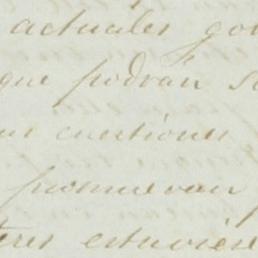 actuales go
que podran s
cuestiones
promuevan
estuviese